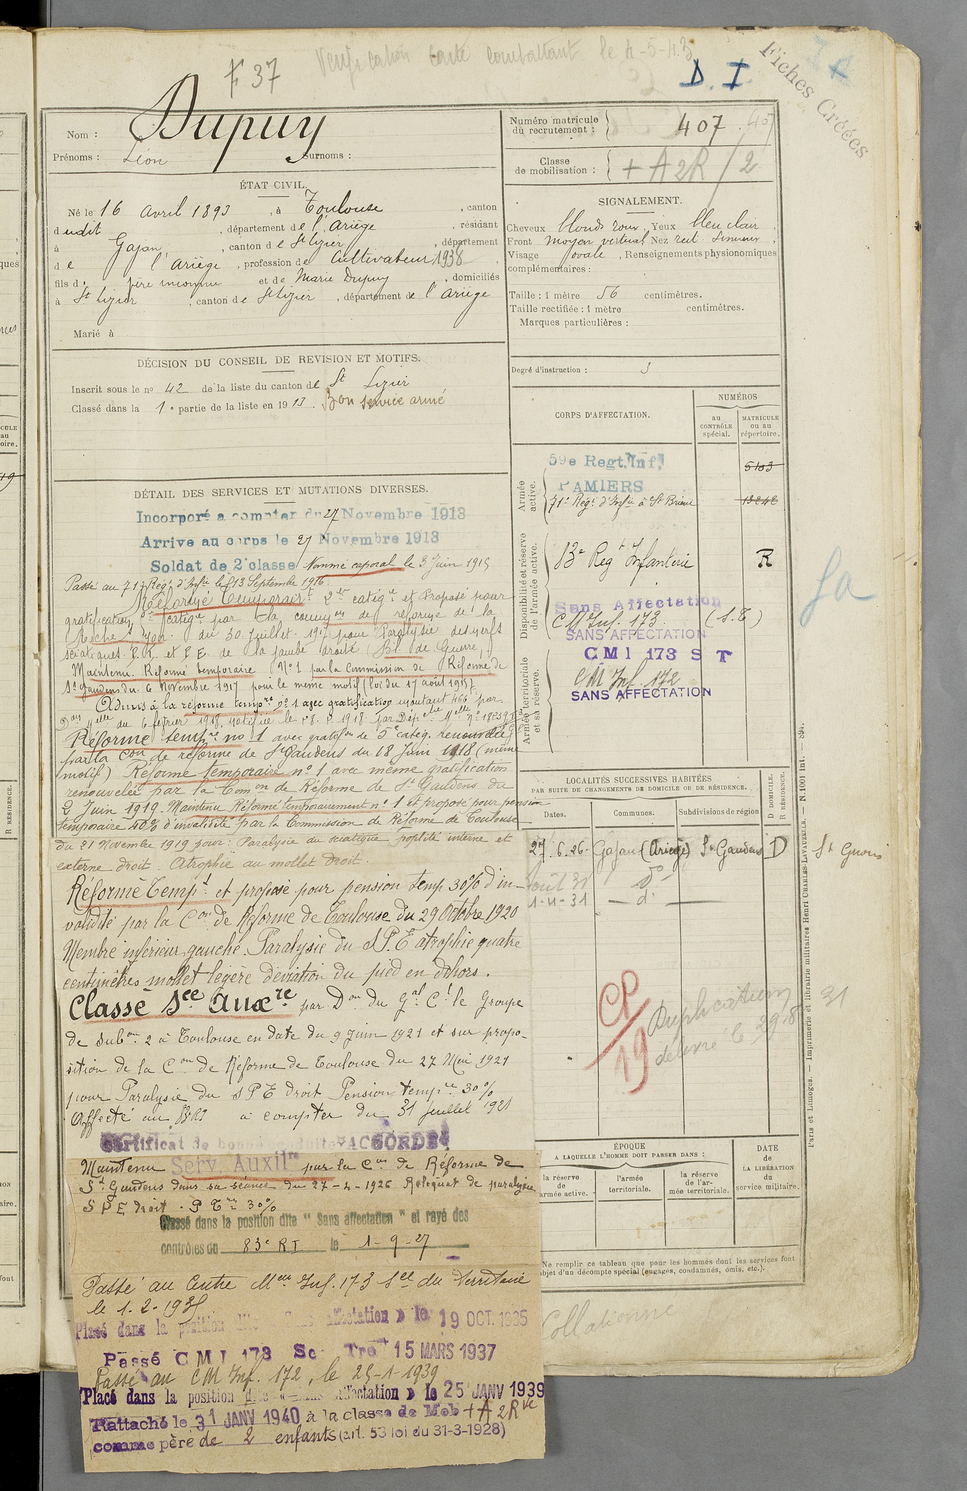 F 37
Verification carte combattant le 4-5-43
D. I
Fiches Créées
Nom : Dupuy
Prénoms : Léon Surnoms :
Numéro matricule du recrutement : 407
Classe de mobilisation : + A 2R / 2
ÉTAT CIVIL.
Né le 16 Avril 1893, à Toulouse, canton
dudit, département de l'Ariège, résidant
à Gajan, canton de St Lizier, département
de l'Ariège, profession de Cultivateur 1938
fils de père inconnu et de Marie Dupuy, domiciliés
à St Lizier, canton de St Lizier, département de l'Ariège
Marié à
SIGNALEMENT.
Cheveux blond roux, Yeux bleu clair,
Front moyen vertical Nez rect. sinueux,
Visage ovale, Renseignements physionomiques
complémentaires :
Taille : 1 mètre 56 centimètres.
Taille rectifiée : 1 mètre centimètres.
Marques particulières :
Degré d'instruction : 3
DÉCISION DU CONSEIL DE REVISION ET MOTIFS.
Inscrit sous le no 42 de la liste du canton de St Lizier
Classé dans la 1e partie de la liste en 1913. Bon service armé
CORPS D'AFFECTATION.
NUMÉROS
au CONTRÔLE spécial.
MATRICULE ou au répertoire.
Armée active.
59e Regt. Inf. 5183
PAMIERS
71e Regt d'Infie à St Brieuc
Disponibilité et réserve de l'armée active.
83e Regt Infanterie R
Sans Affectation
CM Inf. 173 (S.T)
SANS AFFECTATION
Armée territoriale et sa réserve.
CMI 173 S T
CM Inf. 172
SANS AFFECTATION
DÉTAIL DES SERVICES ET MUTATIONS DIVERSES.
Incorporé a compter du 27 Novembre 1913
Arrive au corps le 27 Novembre 1913
Soldat de 2e classe Nommé caporal le 3 Juin 1915
Passé au 71e Regt d'Infie le 13 Septembre 1916
Réformé Temporairt 2e catégie et Proposé pour
gratification 5e catégie par la common de réforme de la
Roche s/ Yon du 30 Juillet 1917 pour Paralysie des nerfs
sciatiques de la jambe droite Bl. de Guerre,
Maintenu Réformé temporaire No 1 par la Commission de Réforme de
St Gaudens du 6 Novembre 1917 pour le même motif (loi du 17 août 1915)
Admis à la réforme tempre no 1 avec gratification
du 6 février 1918, notifiée le
Réformé tempre no 1 avec gratifon de 5e catég. renouvelée
par la Con de réforme de St Gaudens du 18 Juin 1918 (même
motif) Réformé temporaire no 1 avec même gratification
renouvelée par la Common de Réforme de St Gaudens du
2 Juin 1919. Maintenu Réformé temporairement no 1 et proposé pour pension
temporaire 40% d'invalidité par la Commission de Réforme de Toulouse
du 21 Novembre 1919 pour : Paralysie du sciatique poplité interne et
externe droit. Atrophie au mollet droit.
Réformé Tempt et proposé pour pension temp 30% d'in-
validité par la Con de Réforme de Toulouse du 29 Octobre 1920
Membre inférieur gauche. Paralysie du S.P.E atrophie quatre
centimètres mollet légère déviation du pied en dehors.
Classé Sce Auxre par Don du Gal Ct le Groupe
de Subon 2 à Toulouse en date du 9 Juin 1921 et sur propo-
sition de la Con de Réforme de Toulouse du 27 Mai 1921
pour Paralysie du SPE droit Pension tempre 30%
Affecté au 83 RI à compter du 31 Juillet 1921
Certificat de bonne conduite "ACCORDÉ"
Maintenu Serv. Auxilre par la Con de Réforme de
St Gaudens dans sa séance du 27-4-1926 Reliquat de paralysie
SPE droit. P Tre 30%
Classé dans la position dite "Sans affectation" et rayé des
contrôles du 83e RI le 1-9-27
Passé au Centre Meu Inf. 173 Son du Territoire
le 1.2.193
Placé dans la position dite « Sans affectation » le 19 OCT. 1935
Passé CMI 173 Sc Tre 15 MARS 1937
Passé au CM Inf. 172, le 25-1-1939
Placé dans la position dite « Sans affectation » le 25 JANV 1939
Rattaché le 31 JANV 1940 à la classe de Mob + A 2R
comme père de 2 enfants (art. 53 loi du 31-3-1928)
LOCALITÉS SUCCESSIVES HABITÉES
PAR SUITE DE CHANGEMENTS DE DOMICILE OU DE RÉSIDENCE.
Dates. Communes. Subdivisions de région
D DOMICILE.
R RÉSIDENCE.
27.6.26 Gajan (Ariège) St Gaudens D St Girons
Août 31 d°
1-11-31 d°
CP/19
Duplicatum
délivré le 29.8 31
ÉPOQUE
A LAQUELLE L'HOMME DOIT PASSER DANS :
la réserve de l'armée active.
l'armée territoriale.
la réserve de l'armée territoriale.
DATE de LA LIBÉRATION du service militaire.
Ne remplir ce tableau que pour les hommes dont les services font
objet d'un décompte spécial (engagés, condamnés, omis, etc.).
Collationné
Paris et Limoges. — Imprimerie et librairie militaires Henri CHARLES-LAVAUZELLE.